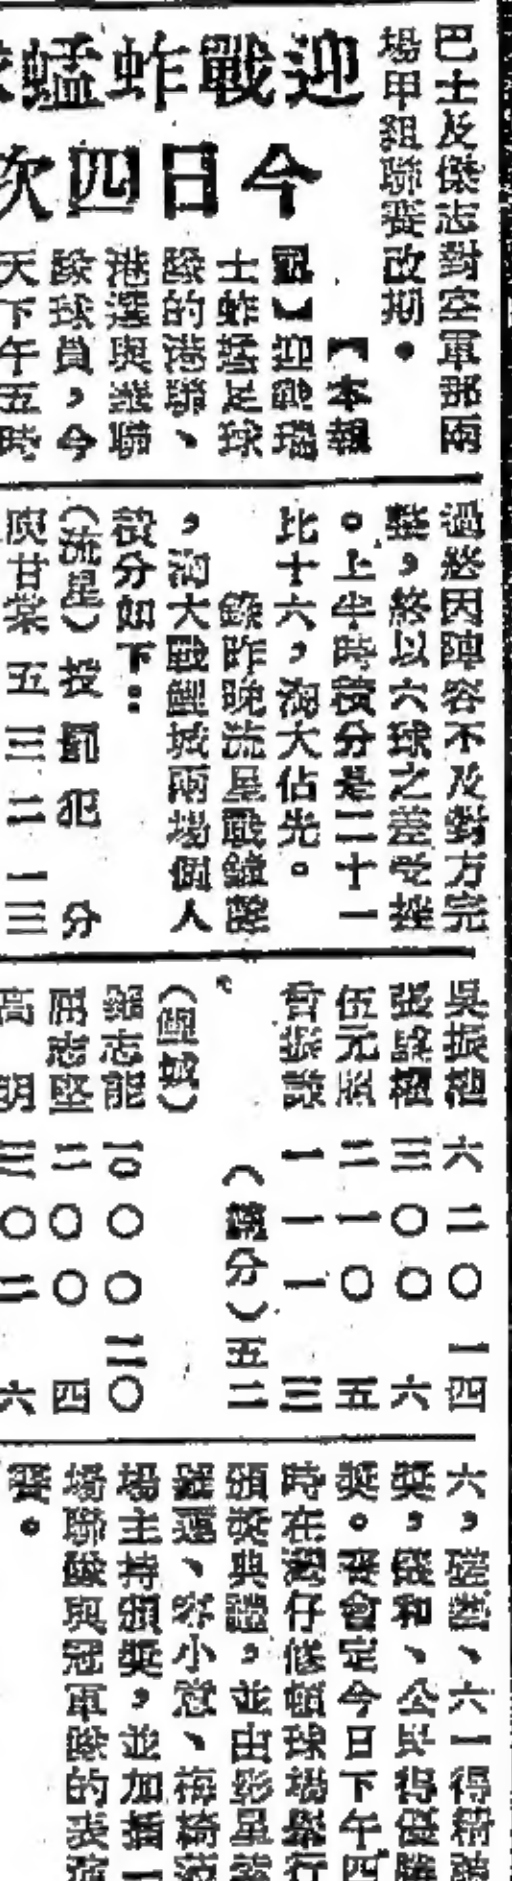 巴士及傑志對空軍那兩
場甲組聯賽改期。
迎戰蚱蜢
今日四次
【本報
訊】迎戰瑞
士蚱蜢足球
隊的港聯、
港選與華聯
隊球員，今
天下午五時
過終因陣容不及對方完
整，終以六球之差受挫
。上半時積分是二十一
比十六，海大佔先。
錄昨晚流星戰鐘聲
，海大戰鯉城兩場個人
積分如下：
（流星）投罰犯 分
庾甘棠 五三二一三
吳振翹 六二〇一四
張 權 三〇〇 六
伍元照 二一〇 五
曾振 一一一 三
（總分）五二
（鯉城）
 志能 一〇〇〇二〇
關志堅 二〇〇 四
高 明 三〇二 六
六，礎 、六一得精
獎， 和、公民得優勝
獎。賽會定今日下午四
時在灣仔修頓球場舉行
頒獎典禮，並由影星
、 小 、梅綺
場主持頒獎，並加插一
場聯隊與冠軍隊的表演
賽。